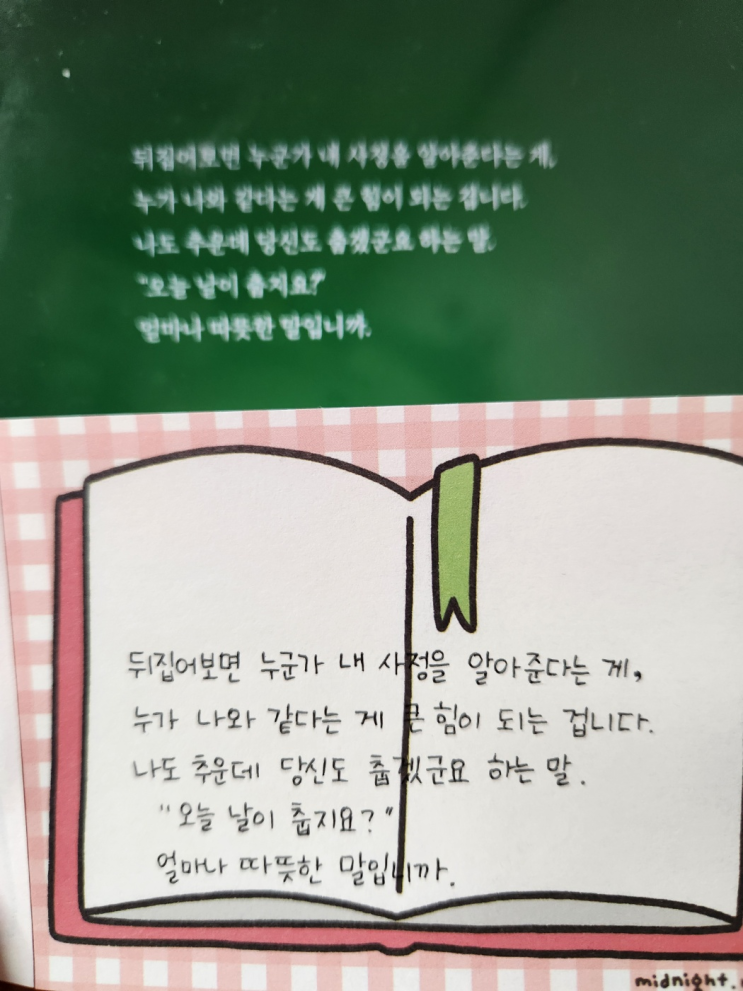 뒤집어보면 누군가 내 사정을 알아준다는 게,
누가 나와 같다는 게 큰 힘이 되는 겁니다.
나도 추운데 당신도 춥겠군요 하는 말.
"오늘 날이 춥지요?"
얼마나 따뜻한 말입니까.
뒤집어보면 누군가 내 사정을 알아준다는 게,
누가 나와 같다는 게 큰 힘이 되는 겁니다.
나도 추운데 당신도 춥겠군요 하는 말.
"오늘 날이 춥지요?"
얼마나 따뜻한 말입니까.
midnight.